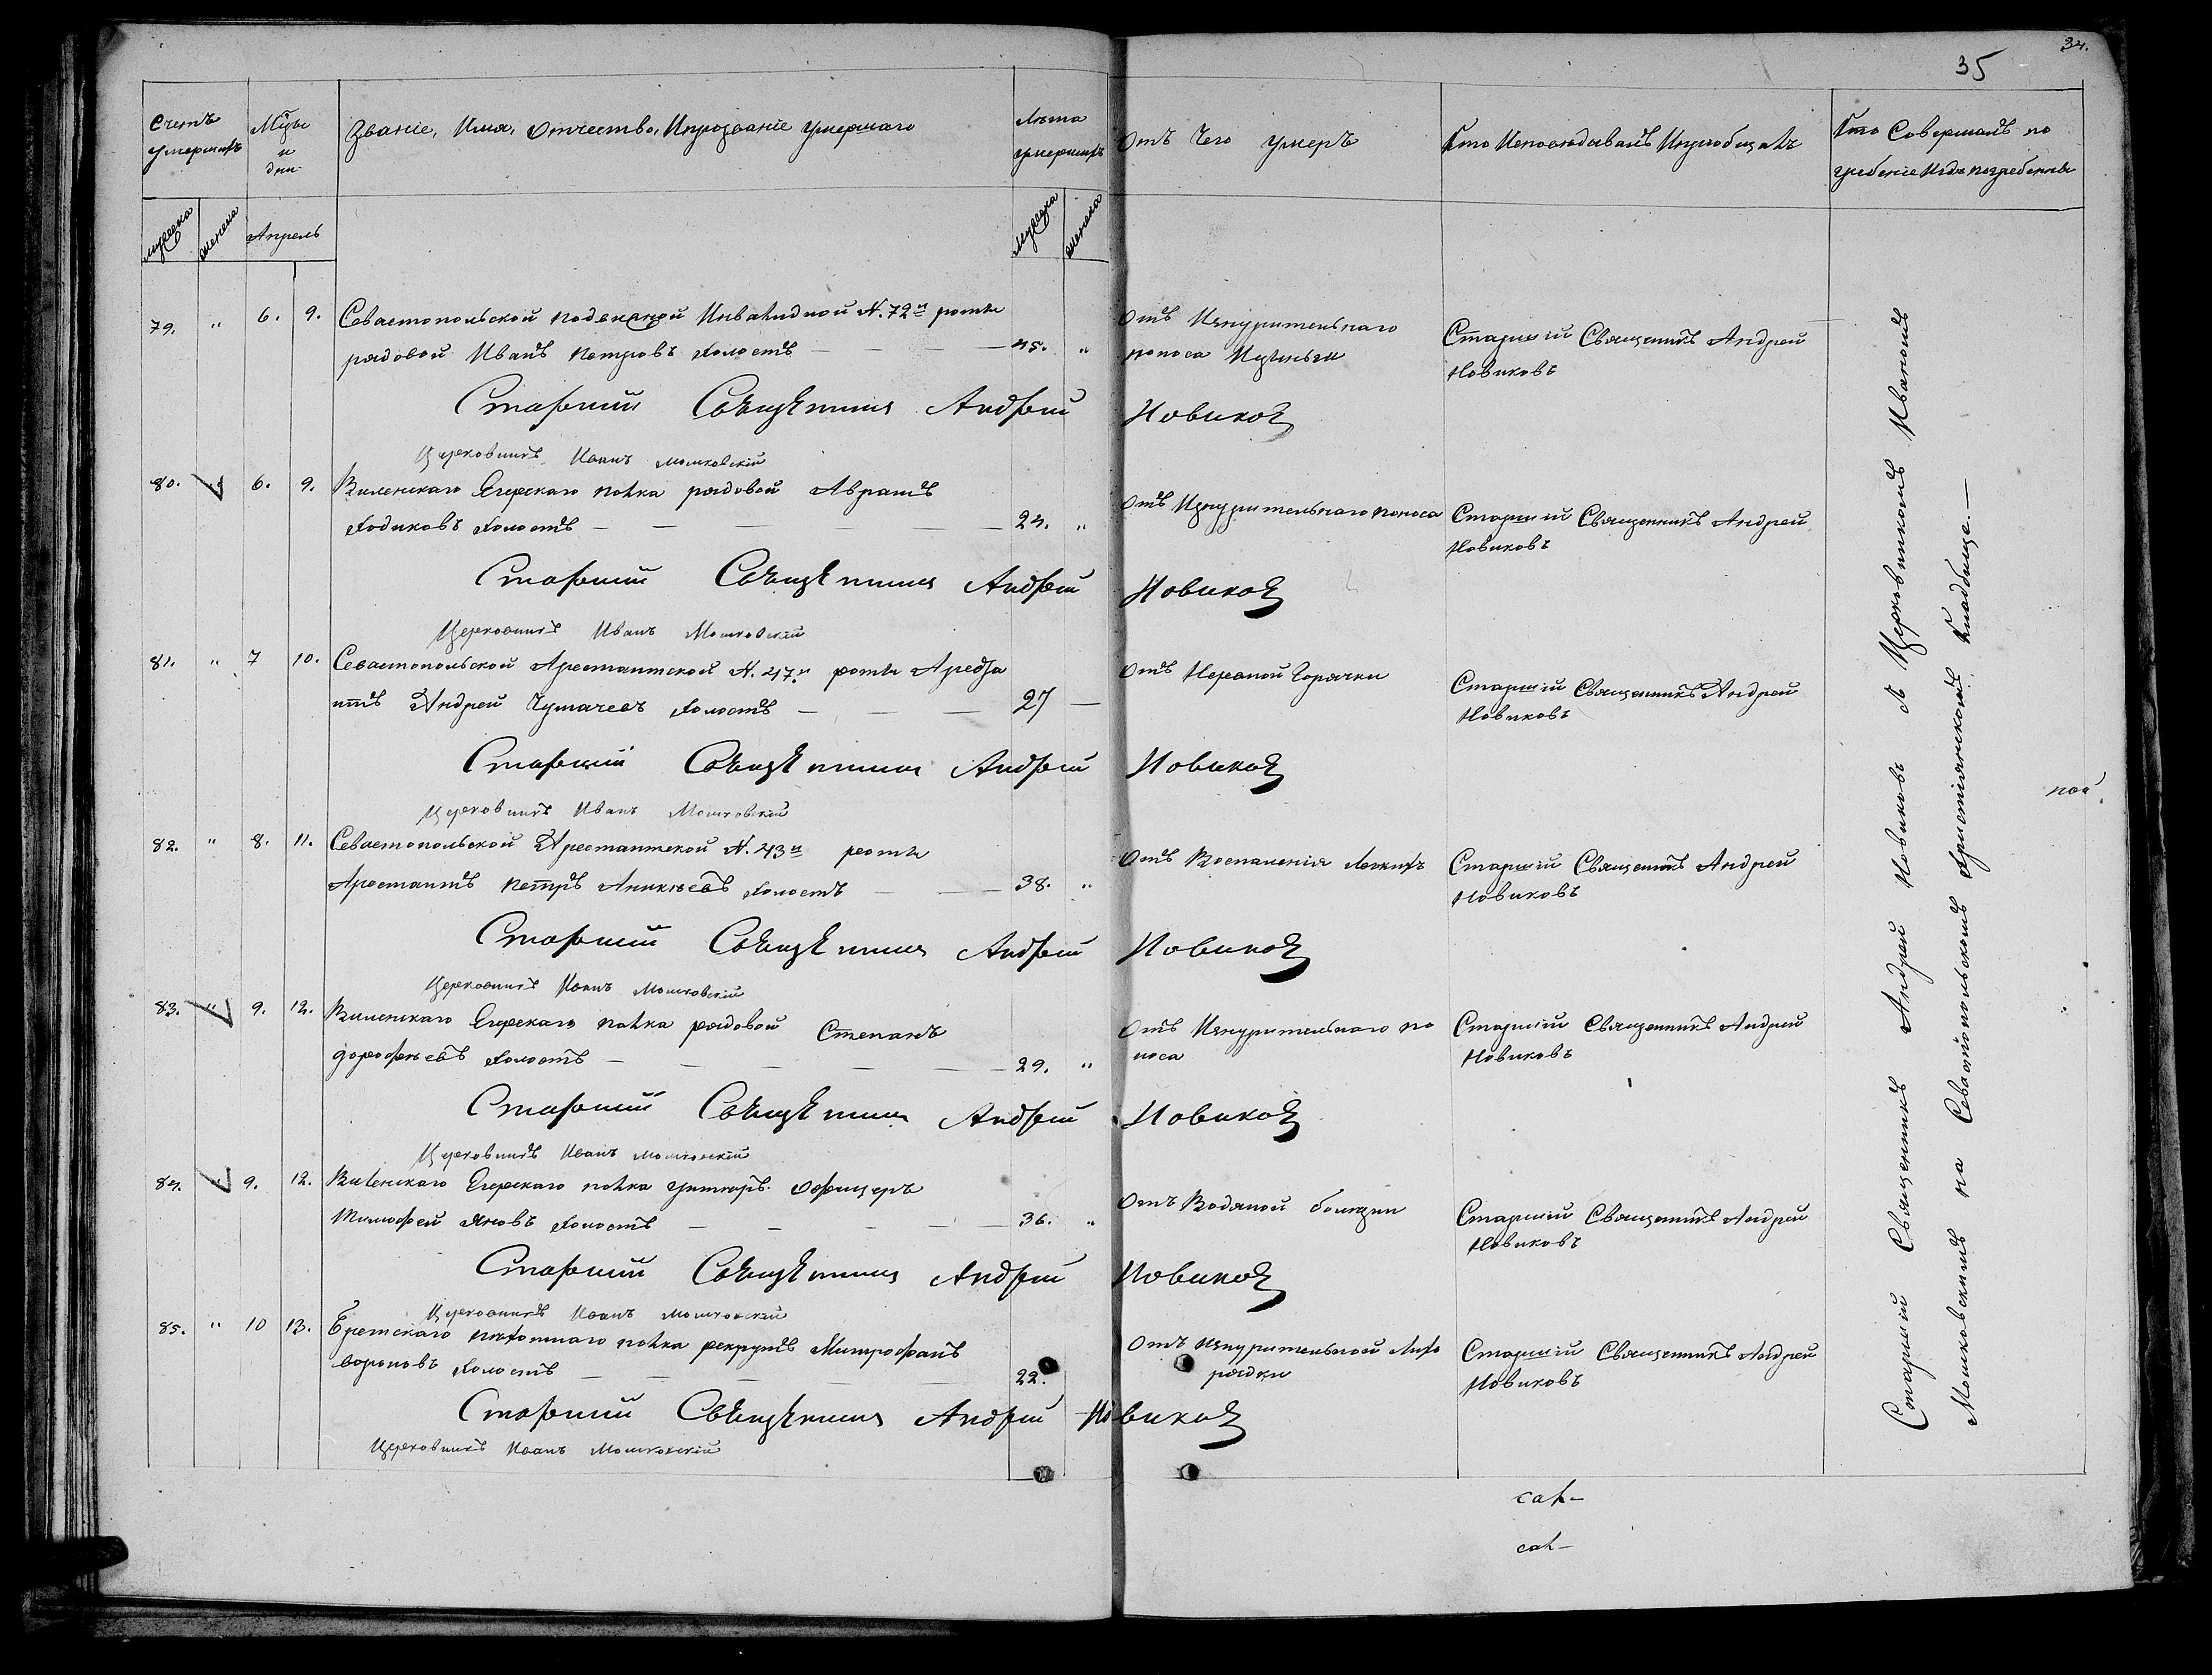 34.
35
Счетъ умершихъ
Мѣсяцы и дни
Званіе, Имя, Отчество, Ипрозваніе умершаго
Лѣта умершихъ
Отъ Чего умеръ
Кто Исповѣдывалъ Ипріобщалъ
Кто Совершалъ по
гребеніе Игдѣ погребены
мужеска
женска
Апрель
мужеска
женска
79. " 6. 9. Севастопольской подвижной Инвалидной N. 72й роты
рядовой Иванъ Петровъ Холостъ — 45. "
Отъ Изнурительнаго
поноса
Старшій Священникъ Андрей
Новиковъ
Старшій Священникъ Андрей Новиковъ
Церковникъ Иванъ Мошковскій
80. " 6. 9. Виленскаго Егерскаго полка рядовой Аврамъ
Ходиковъ Холостъ — 24. "
Отъ Изнурительнаго поноса
Старшій Священникъ Андрей
Новиковъ
Старшій Священникъ Андрей Новиковъ
Церковникъ Иванъ Мошковскій
81. " 7 10. Севастопольской Арестантской N. 47й роты Ареста
нтъ Андрей Чумачевъ Холостъ — 27 —
Отъ Нервной Горячки
Старшій Священникъ Андрей
Новиковъ
Старшій Священникъ Андрей Новиковъ
Церковникъ Иванъ Мошковскій
82. " 8. 11. Севастопольской Арестантской N. 43й роты
Арестантъ Петръ Аникѣевъ Холостъ — 38. "
Отъ Воспаленія Легкихъ
Старшій Священникъ Андрей
Новиковъ
Старшій Священникъ Андрей Новиковъ
Церковникъ Иванъ Мошковскій
83. " 9. 12. Виленскаго Егерскаго полка рядовой Степанъ
Дорофѣевъ Холостъ — 29. "
Отъ Изнурительнаго по
носа
Старшій Священникъ Андрей
Новиковъ
Старшій Священникъ Андрей Новиковъ
Церковникъ Иванъ Мошковскій
84. " 9. 12. Виленскаго Егерскаго полка унтеръ офицеръ
Тимофей Яновъ Холостъ — 36. "
Отъ Водяной болезни
Старшій Священникъ Андрей
Новиковъ
Старшій Священникъ Андрей Новиковъ
Церковникъ Иванъ Мошковскій
85. " 10 13. Брестскаго пѣхотнаго полка рекрутъ Митрофанъ
Вороновъ Холостъ — 22.
Отъ Изнурительной Лихо
радки
Старшій Священникъ Андрей
Новиковъ
Старшій Священникъ Андрей Новиковъ
Церковникъ Иванъ Мошковскій
Старшій Священникъ Андрей Новиковъ Съ Церковникомъ Иваномъ
Мошковскимъ на Севастопольскомъ Христіанскомъ Кладбище. —